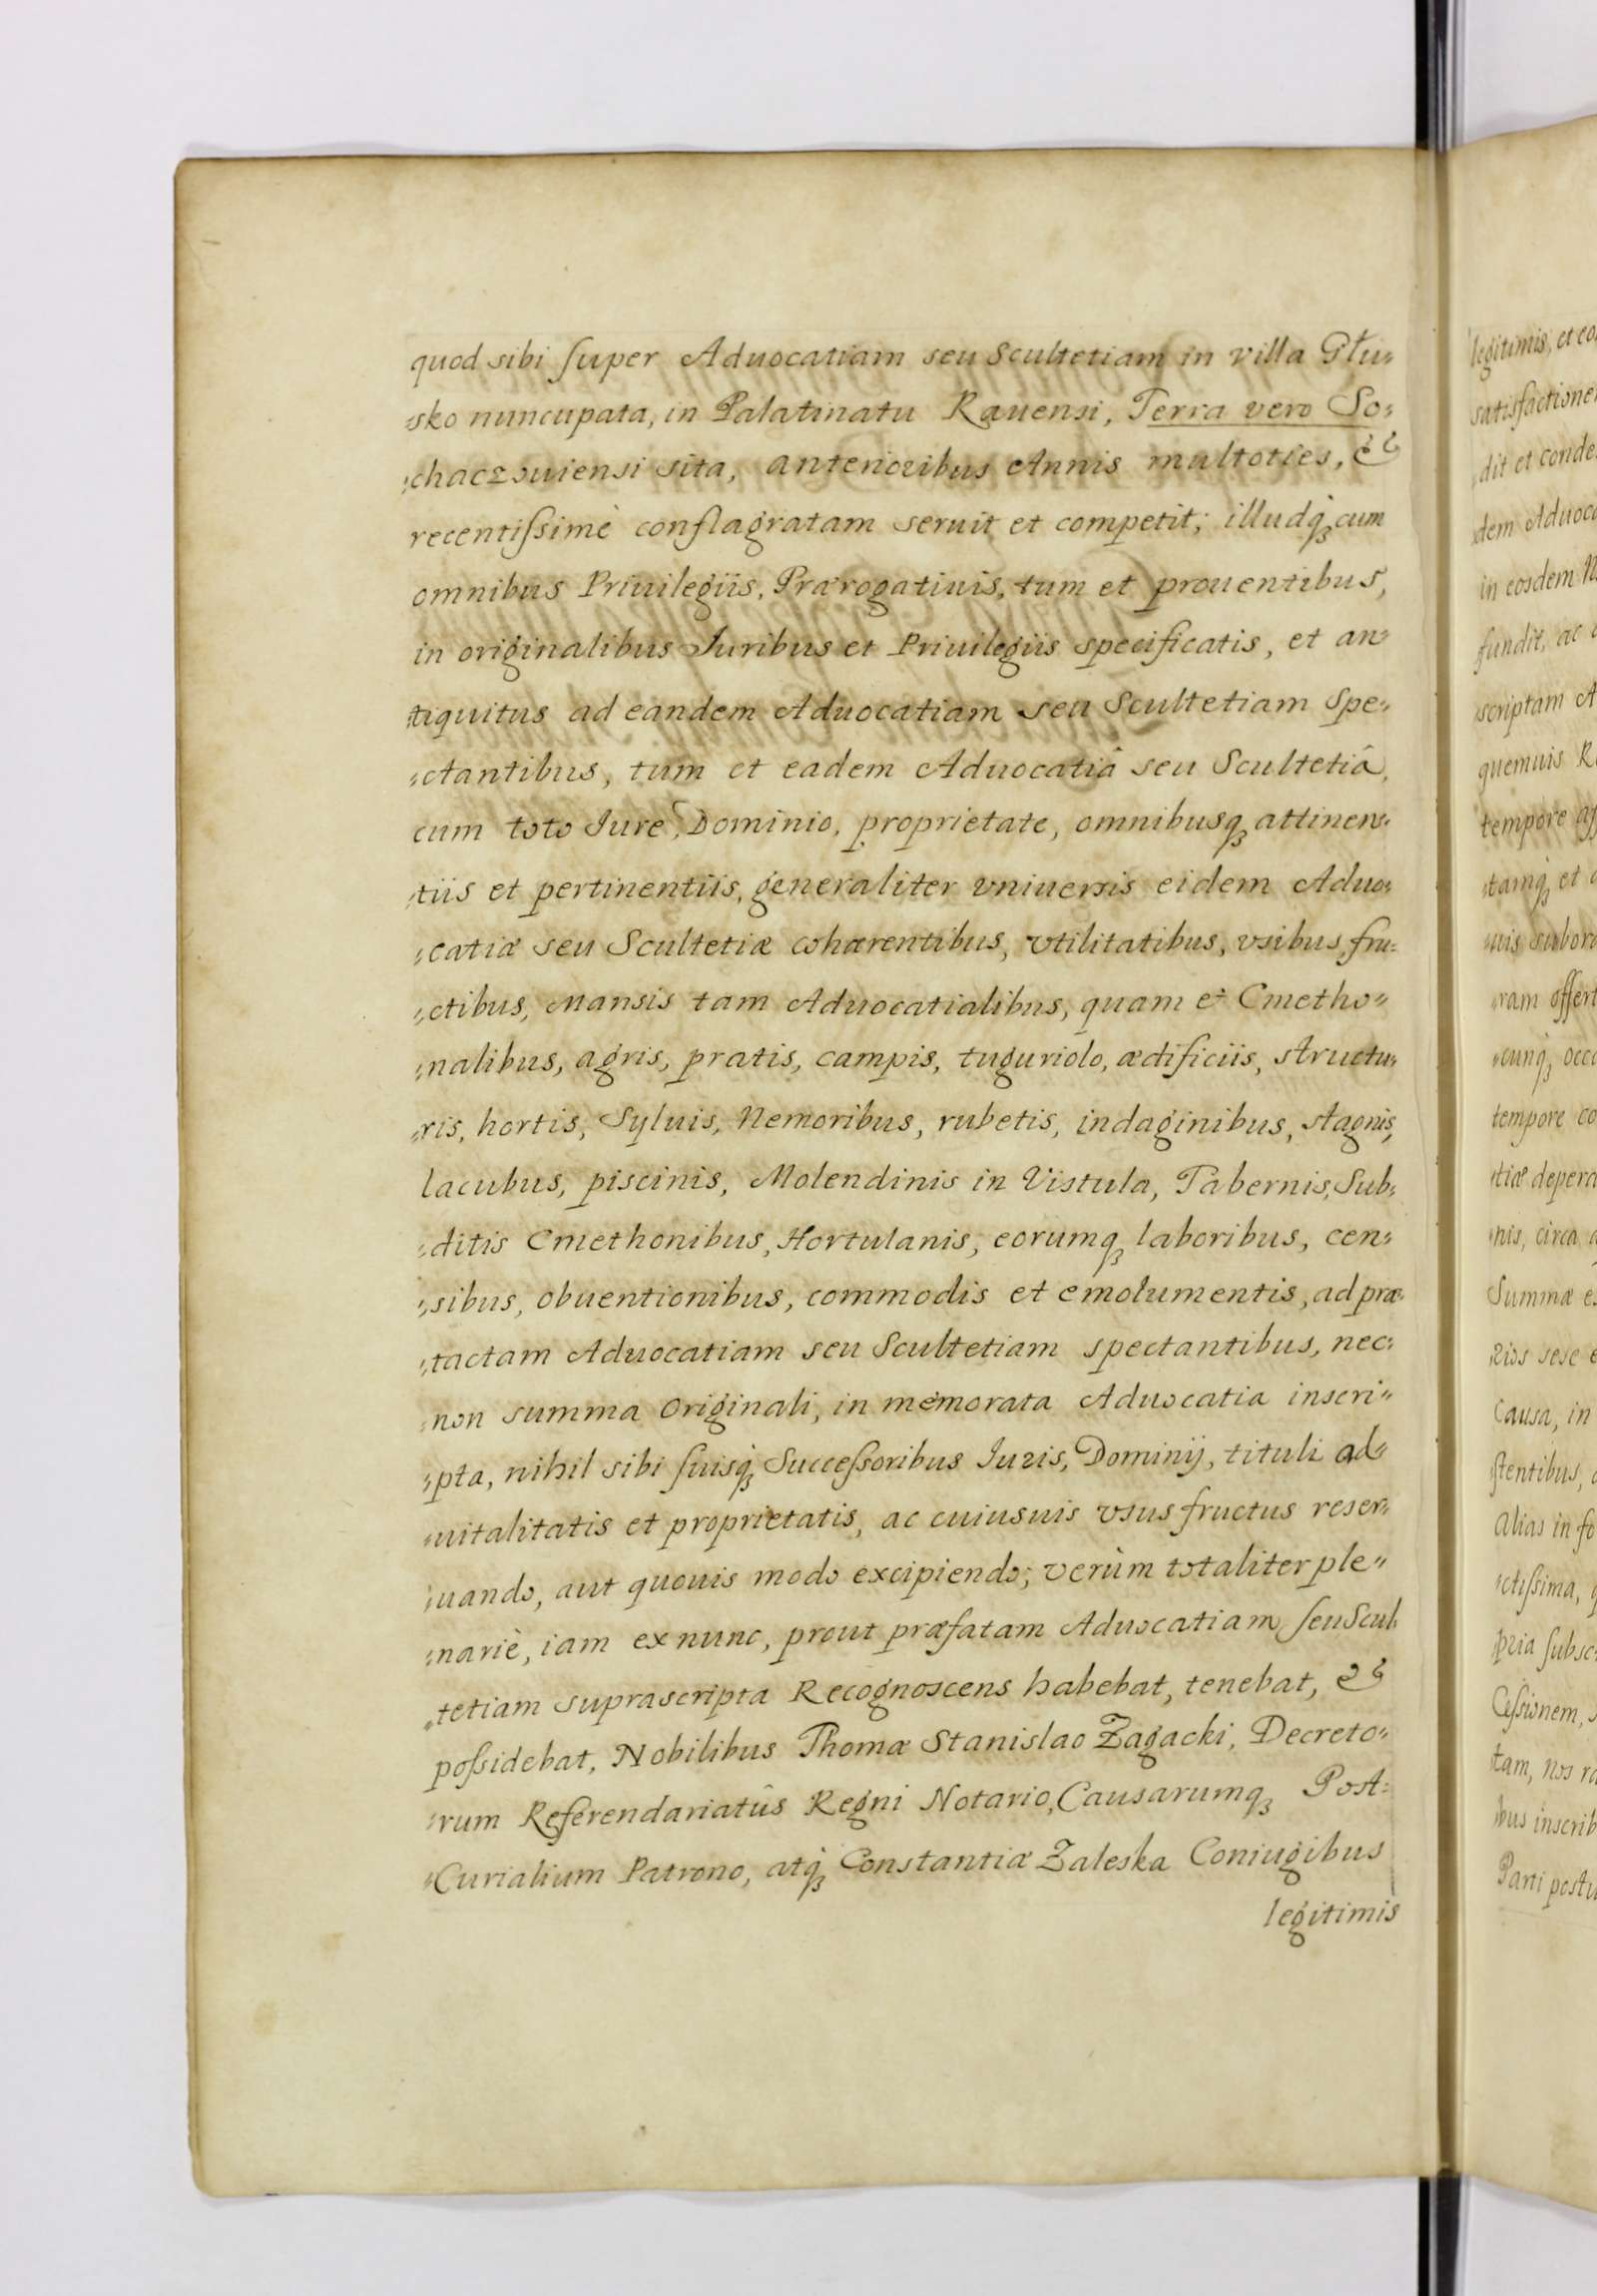 quod sibi ſuper Aduocatiam seu Scultetiam in villa Głu„
„sko nuncupata, in Palatinatu Rauensi, Terra vero So„
„chaczouiensi sita, anterioribus Annis multoties, &
recentiſsimè conflagratam seruit et competit; illudq́ꝫ cum
omnibus Priuilegiis, Prærogatiuis, tum et prouentibus,
in originalibus Iuribus et Priuilegiis specificatis, et an„
„tiquitus ad eandem Aduocatiam seu Scultetiam spe„
„ctantibus, tum et eadem Aduocatiâ seu Scultetiâ,
cum toto Iure, Dominio, proprietate, omnibusqꝫ attinen„
„tiis et pertinentiis, generaliter vniuersis eidem Aduo„
„catiæ seu Scultetiæ cohærentibus, vtilitatibus, vsibus, fru„
„ctibus, Mansis tam Aduocatialibus, quam et Cmetho„
„nalibus, agris, pratis, campis, tuguriolo, ædificiis, structu„
„ris, hortis, Syluis, Nemoribus, rubetis, indaginibus, stagnis,
lacubus, piscinis, Molendinis in Vistula, Tabernis, Sub„
„ditis Cmethonibus, Hortulanis, eorumqꝫ laboribus, cen„
„sibus, obuentionibus, commodis et emolumentis, ad præ„
„tactam Aduocatiam seu Scultetiam spectantibus, nec„
„non summa Originali, in memorata Aduocatia inscri„
„pta, nihil sibi ſuisq́ꝫ Succeſsoribus Iuris, Dominij, tituli ad„
„uitalitatis et proprietatis, ac cuiusuis vsusfructus reser„
„uando, aut quouis modo excipiendo; verùm totaliter ple„
„nariè, iam ex nunc, prout præfatam Aduocatiam ſeu Scul„
„tetiam suprascripta Recognoscens habebat, tenebat, &
poſsidebat, Nobilibus Thomæ Stanislao Zagacki, Decreto„
„rum Referendariatûs Regni Notario, Causarumqꝫ Post„
„Curialium Patrono, atq́ꝫ Constantiæ Zaleska Coniugibus
legitimis
legitimis, et co
satisfactione
„dit et conde
„dem Aduoca
in eosdem N
fundit, ac
„scriptam A
quemuis R
tempore af
„tamqꝫ et
„uis subor
„ram offert
„cunq́ꝫ occa
tempore co
„tiæ depera
„nis, circa
Summæ e
„rios sese e
Causa, in
ſtentibus,
alias in fo
„ctiſsima,
„pria subsc
Ceſsionem,
tam, nos ra
„bus inscrib
Parti postu